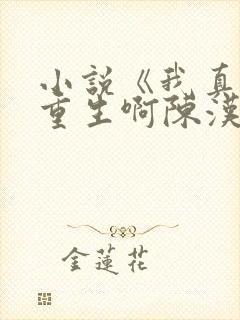 小說《我真
重生啊陳漢
金蓮花